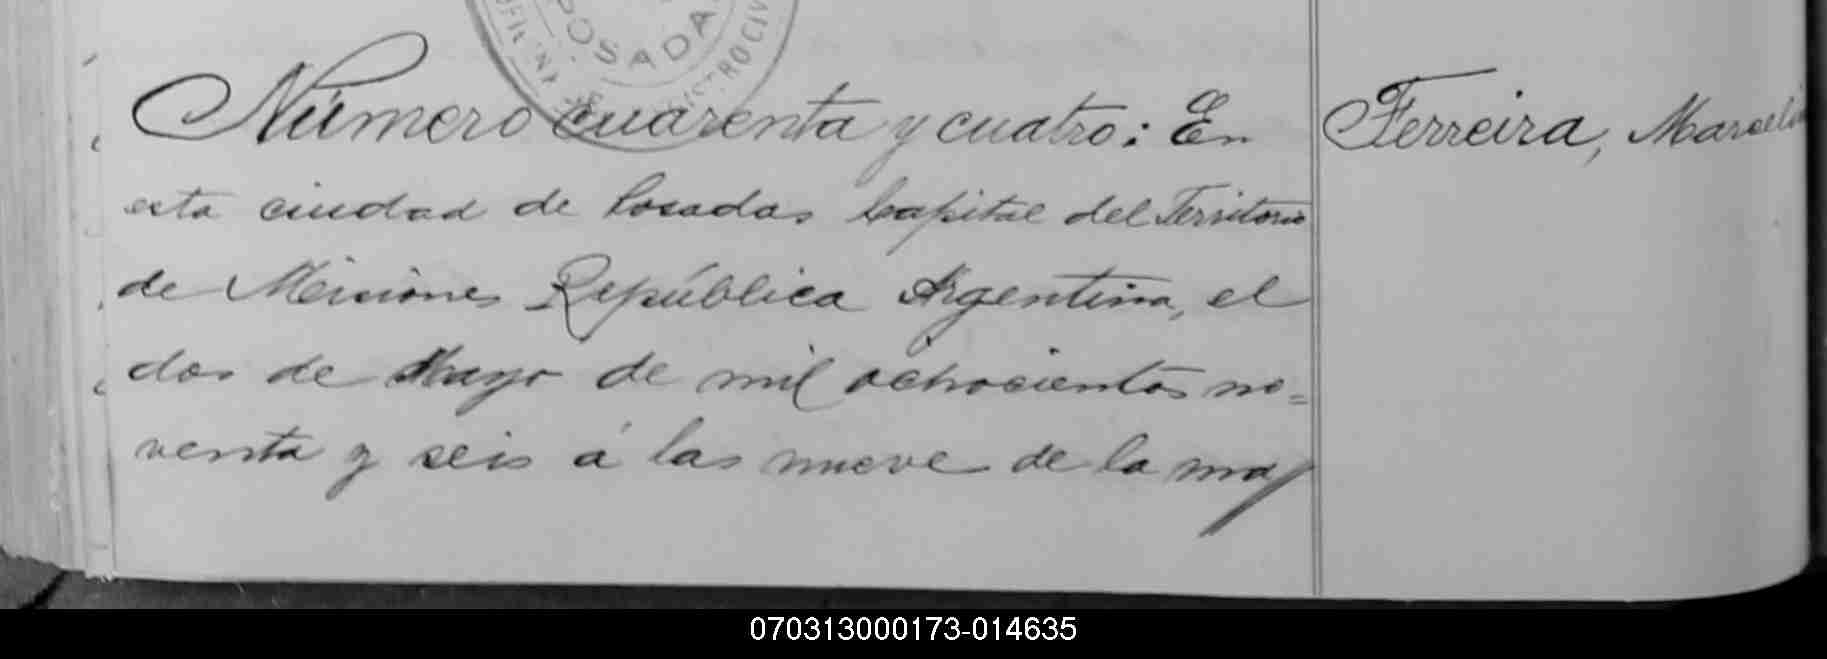 POSADA
Número cuarenta y cuatro: En
Ferreira, Marcelin
esta ciudad de Posadas Capital del Territorio
de Misiones República Argentina, el
dos de Mayo de mil ochocientos no=
venta y seis á las nueve de la ma
070313000173-014635